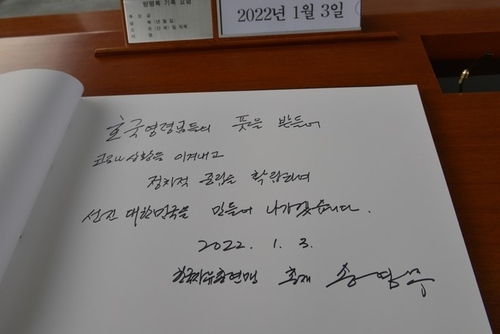 방명록 기록 요령
2022년 1월 3일
호국영령님들의 뜻을 받들어
코로나 상황을 이겨내고
정치적 중립을 확립하여
선진 대한민국을 만들어 나가겠습니다.
2022. 1. 3.
한국자유총연맹 총재 송영무